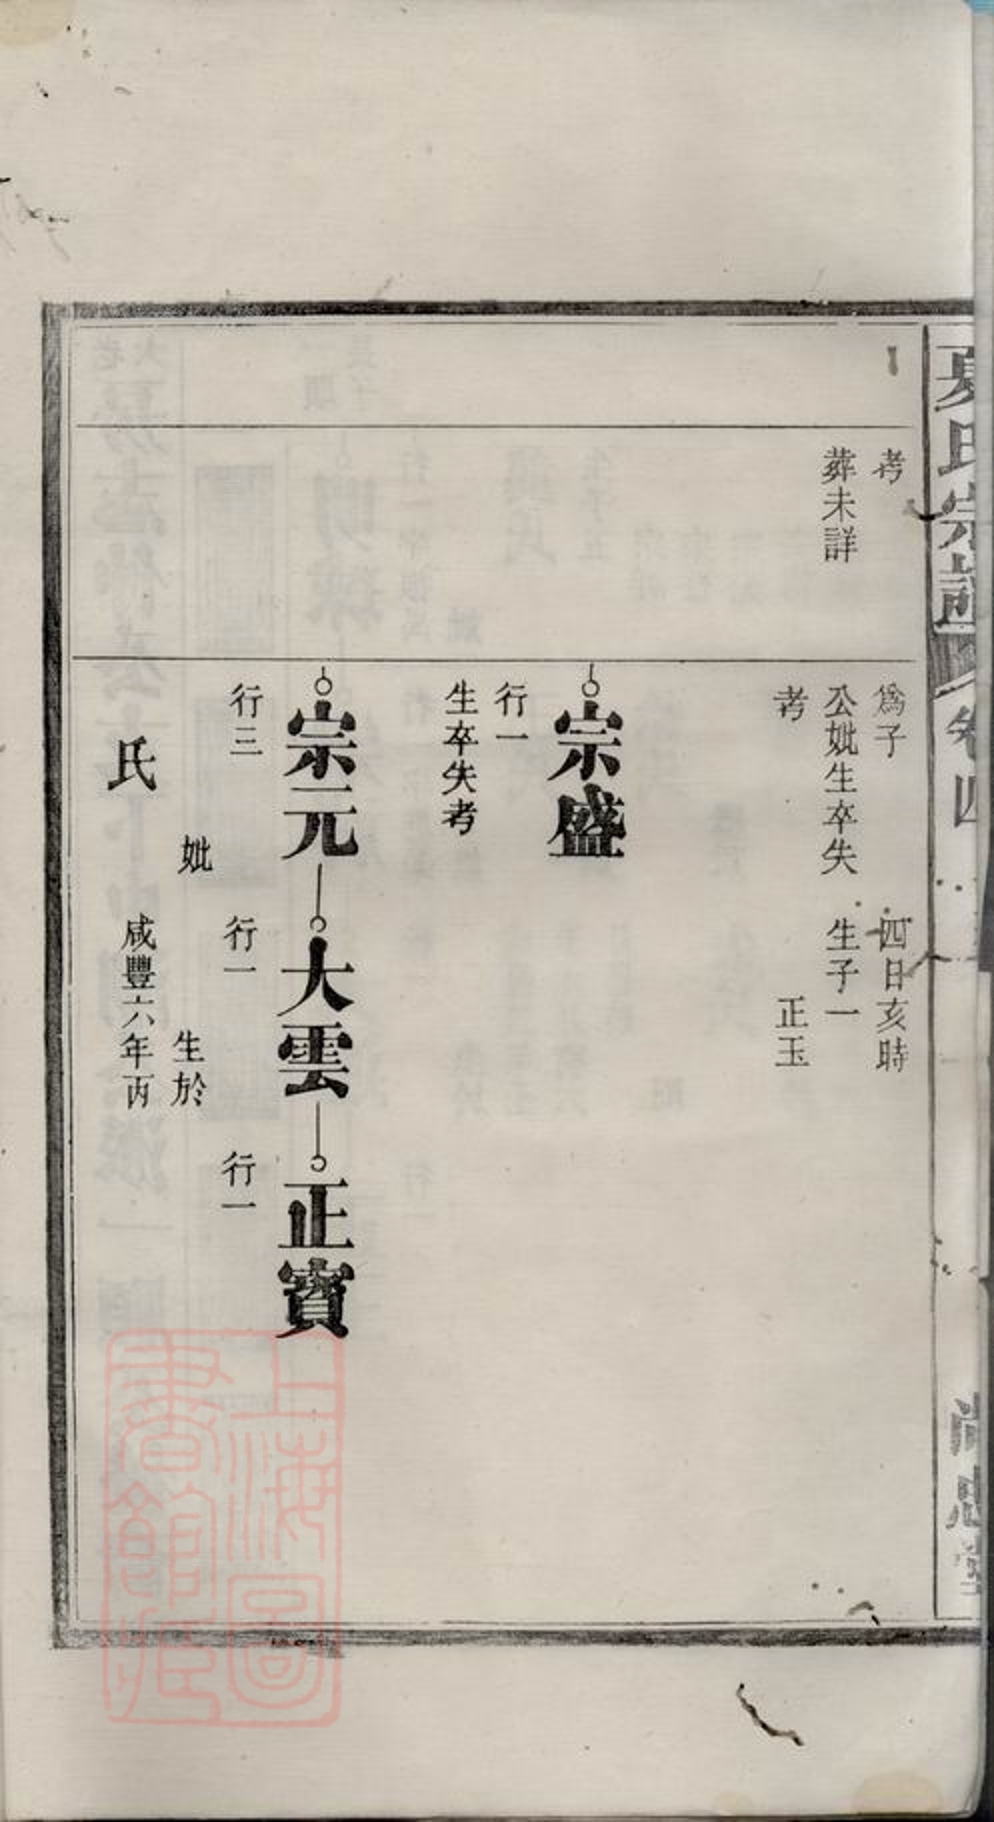 夏氏宗譜
卷四
尚忠堂
考
葬未詳
爲子
公妣生卒失
考
四日亥時
生子一
正玉
宗盛
行一
生卒失考
宗元
行三
妣
氏
大雲
行一
生於
咸豐六年丙
正寶
行一
上海圖
書館藏